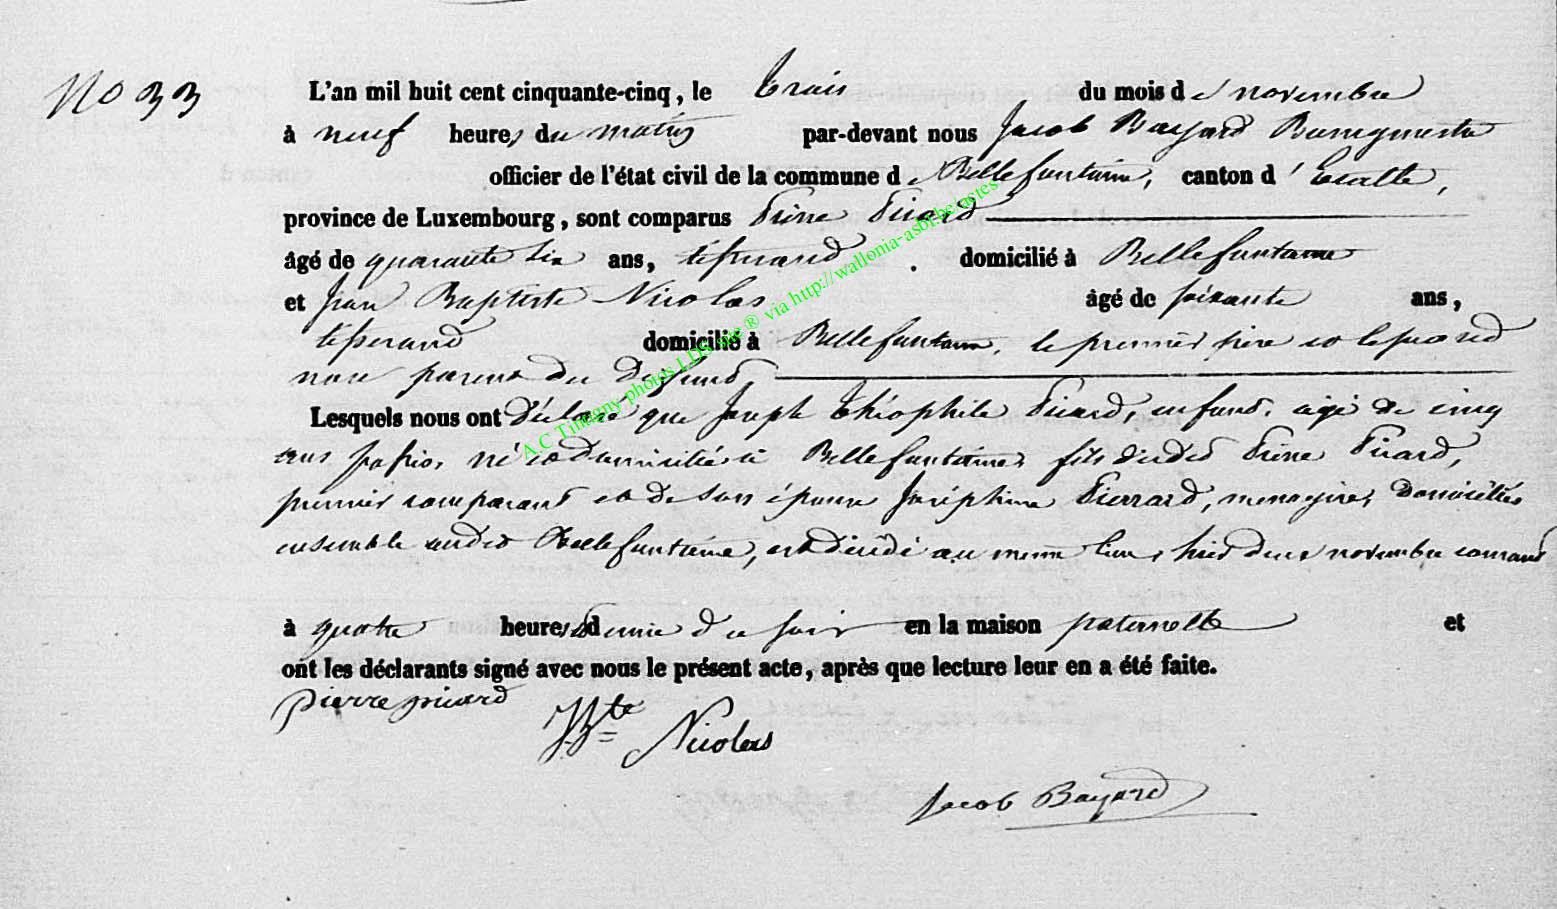 No 33
L'an mil huit cent cinquante-cinq, le trois du mois de novembre
à neuf heures du matin par-devant nous Jacob Bayard Bourgmestre
officier de l'état civil de la commune de Bellefontaine, canton d'Etalle,
province de Luxembourg, sont comparus Pierre Picard
âgé de quarante six ans, tisserand domicilié à Bellefontaine
et Jean Baptiste Nicolas âgé de soixante ans,
tisserand domicilié à Bellefontaine, le premier père et le second
non parent du défunt
Lesquels nous ont déclaré que Joseph Théophile Picard, enfant, agé de cinq
ans né et domicilié à Bellefontaine, fils dudit Pierre Picard,
premier comparant et de son épouse Joséphine Pierrard, menagère, domiciliés
ensemble audit Bellefontaine, est décédé au meme lieu, hier deux novembre courant
à quatre heures et demie du soir en la maison paternelle et
ont les déclarants signé avec nous le présent acte, après que lecture leur en a été faite.
pierre picard
JBte Nicolas
Jacob Bayard
A.C Tintigny photos LDS ® via http://wallonia-asbl.be/actes